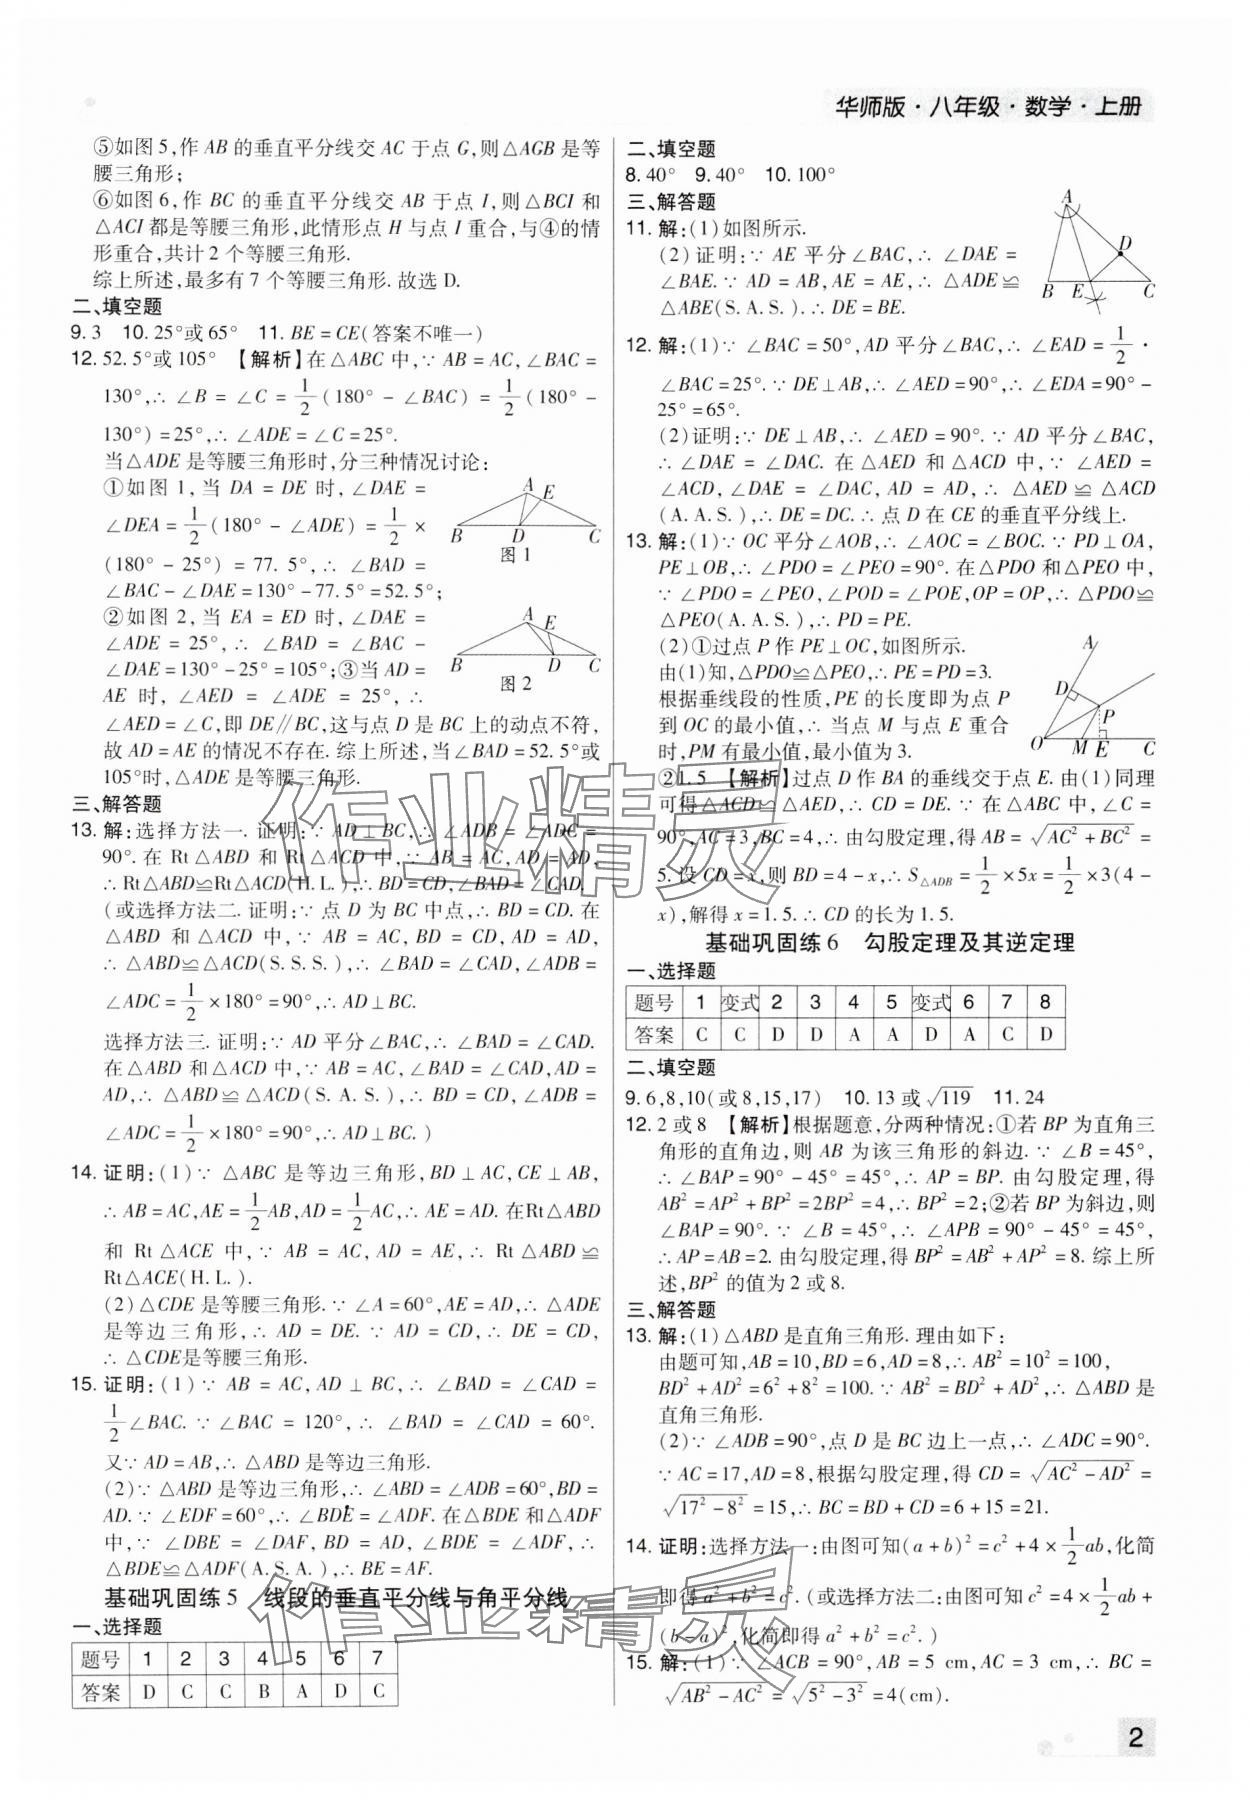 华师版·八年级·数学·上册
⑤如图5,作AB的垂直平分线交AC于点G,则△AGB是等
腰三角形;
⑥如图6,作BC的垂直平分线交AB于点I,则△BCI和
△ACI都是等腰三角形,此情形点H与点I重合,与④的情
形重合,共计2个等腰三角形.
综上所述,最多有7个等腰三角形.故选D.
二、填空题
9.3 10.25°或65° 11.BE=CE(答案不唯一)
12.52.5°或105° 【解析】在△ABC中,∵AB=AC,∠BAC=
130°,∴∠B=∠C=1/2(180°-∠BAC)=1/2(180°-
130°)=25°,∴∠ADE=∠C=25°.
当△ADE是等腰三角形时,分三种情况讨论:
①如图1,当DA=DE时,∠DAE=
∠DEA=1/2(180°-∠ADE)=1/2×
(180°-25°)=77.5°,∴∠BAD=
∠BAC-∠DAE=130°-77.5°=52.5°;
②如图2,当EA=ED时,∠DAE=
∠ADE=25°,∴∠BAD=∠BAC-
∠DAE=130°-25°=105°;③当AD=
AE时,∠AED=∠ADE=25°,∴
∠AED=∠C,即DE∥BC,这与点D是BC上的动点不符,
故AD=AE的情况不存在.综上所述,当∠BAD=52.5°或
105°时,△ADE是等腰三角形.
A E
B D C
图1
A E
B D C
图2
三、解答题
13.解:选择方法一.证明:∵AD⊥BC,∴∠ADB=∠ADC=
90°.在Rt△ABD和Rt△ACD中,∵AB=AC,AD=AD,
∴Rt△ABD≌Rt△ACD(H.L.),∴BD=CD,∠BAD=∠CAD.
(或选择方法二.证明:∵点D为BC中点,∴BD=CD.在
△ABD和△ACD中,∵AB=AC,BD=CD,AD=AD,
∴△ABD≌△ACD(S.S.S.),∴∠BAD=∠CAD,∠ADB=
∠ADC=1/2×180°=90°,∴AD⊥BC.
选择方法三.证明:∵AD平分∠BAC,∴∠BAD=∠CAD.
在△ABD和△ACD中,∵AB=AC,∠BAD=∠CAD,AD=
AD,∴△ABD≌△ACD(S.A.S.),∴BD=CD,∠ADB=
∠ADC=1/2×180°=90°,∴AD⊥BC.)
14.证明:(1)∵△ABC是等边三角形,BD⊥AC,CE⊥AB,
∴AB=AC,AE=1/2AB,AD=1/2AC,∴AE=AD.在Rt△ABD
和Rt△ACE中,∵AB=AC,AD=AE,∴Rt△ABD≌
Rt△ACE(H.L.).
(2)△CDE是等腰三角形.∵∠A=60°,AE=AD,∴△ADE
是等边三角形,∴AD=DE.∵AD=CD,∴DE=CD,
∴△CDE是等腰三角形.
15.证明:(1)∵AB=AC,AD⊥BC,∴∠BAD=∠CAD=
1/2∠BAC.∵∠BAC=120°,∴∠BAD=∠CAD=60°.
又∵AD=AB,∴△ABD是等边三角形.
(2)∵△ABD是等边三角形,∴∠ABD=∠ADB=60°,BD=
AD.∵∠EDF=60°,∴∠BDE=∠ADF.在△BDE和△ADF
中,∵∠DBE=∠DAF,BD=AD,∠BDE=∠ADF,∴
△BDE≌△ADF(A.S.A.),∴BE=AF.
基础巩固练5 线段的垂直平分线与角平分线
一、选择题
题号 1 2 3 4 5 6 7
答案 D C C B A D C
二、填空题
8.40° 9.40° 10.100°
三、解答题
11.解:(1)如图所示.
(2)证明:∵AE平分∠BAC,∴∠DAE=
∠BAE.∵AD=AB,AE=AE,∴△ADE≌
△ABE(S.A.S.),∴DE=BE.
A
D
B E C
12.解:(1)∵∠BAC=50°,AD平分∠BAC,∴∠EAD=1/2·
∠BAC=25°.∵DE⊥AB,∴∠AED=90°,∴∠EDA=90°-
25°=65°.
(2)证明:∵DE⊥AB,∴∠AED=90°.∵AD平分∠BAC,
∴∠DAE=∠DAC.在△AED和△ACD中,∵∠AED=
∠ACD,∠DAE=∠DAC,AD=AD,∴△AED≌△ACD
(A.A.S.),∴DE=DC.∴点D在CE的垂直平分线上.
13.解:(1)∵OC平分∠AOB,∴∠AOC=∠BOC.∵PD⊥OA,
PE⊥OB,∴∠PDO=∠PEO=90°.在△PDO和△PEO中,
∵∠PDO=∠PEO,∠POD=∠POE,OP=OP,∴△PDO≌
△PEO(A.A.S.),∴PD=PE.
(2)①过点P作PE⊥OC,如图所示.
由(1)知,△PDO≌△PEO,∴PE=PD=3.
根据垂线段的性质,PE的长度即为点P
到OC的最小值,∴当点M与点E重合
时,PM有最小值,最小值为3.
A
D
P
O M E C
②1.5 【解析】过点D作BA的垂线交于点E.由(1)同理
可得△ACD≌△AED,∴CD=DE.∵在△ABC中,∠C=
90°,AC=3,BC=4,∴由勾股定理,得AB=√(AC²+BC²)=
5.设CD=x,则BD=4-x,∴S△ADB=1/2×5x=1/2×3(4-
x),解得x=1.5.∴CD的长为1.5.
基础巩固练6 勾股定理及其逆定理
一、选择题
题号 1 变式 2 3 4 5 变式 6 7 8
答案 C C D D A A D A C D
二、填空题
9.6,8,10(或8,15,17) 10.13或√119 11.24
12.2或8 【解析】根据题意,分两种情况:①若BP为直角三
角形的直角边,则AB为该三角形的斜边.∵∠B=45°,
∴∠BAP=90°-45°=45°,∴AP=BP.由勾股定理,得
AB²=AP²+BP²=2BP²=4,∴BP²=2;②若BP为斜边,则
∠BAP=90°.∵∠B=45°,∴∠APB=90°-45°=45°,
∴AP=AB=2.由勾股定理,得BP²=AB²+AP²=8.综上所
述,BP²的值为2或8.
三、解答题
13.解:(1)△ABD是直角三角形.理由如下:
由题可知,AB=10,BD=6,AD=8,∴AB²=10²=100,
BD²+AD²=6²+8²=100.∵AB²=BD²+AD²,∴△ABD是
直角三角形.
(2)∵∠ADB=90°,点D是BC边上一点,∴∠ADC=90°.
∵AC=17,AD=8,根据勾股定理,得CD=√(AC²-AD²)=
√(17²-8²)=15,∴BC=BD+CD=6+15=21.
14.证明:选择方法一:由图可知(a+b)²=c²+4×1/2ab,化简
即得a²+b²=c².(或选择方法二:由图可知c²=4×1/2ab+
(b-a)²,化简即得a²+b²=c².)
15.解:(1)∵∠ACB=90°,AB=5 cm,AC=3 cm,∴BC=
√(AB²-AC²)=√(5²-3²)=4(cm).
作业精灵
作业精灵
2